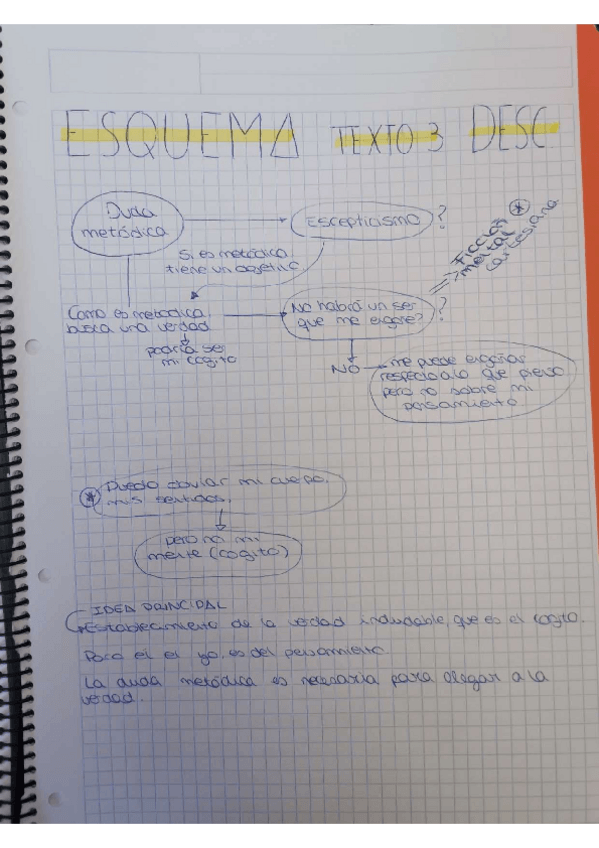 ESQUEMA TEXTO 3 DESC
Duda
metódica
Escepticismo ?
Si es metódica
tiene un objetivo
Ficción
mental
cartesiana
*
Como es metódica
busca una verdad
podría ser
mi cogito
No habrá un ser
que me engañe? ?
NO
me puede engañar
respecto a lo que pienso
pero no sobre mi
pensamiento
* Puedo dudar mi cuerpo,
mis sentidos,
pero no mi
mente (cogito)
IDEA PRINCIPAL
Establecimiento de la verdad indudable, que es el cogito.
Para él el yo, es del pensamiento
La duda metódica es necesaria para llegar a la
verdad.